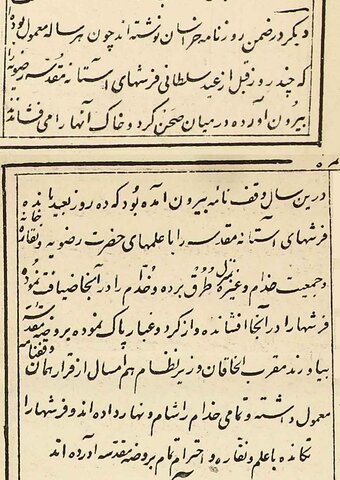 دیگر در ضمن روزنامه خراسان نوشته اند چون هر ساله معمول بوده
که چند روز قبل از عید سلطانی فرشهای آستانه مقدسه رضویه را
بیرون آورده در میان صحن کرد و خاک آنها را می فشاندند
درین سال وقف نامه بیرون آمده بود که ده روز بعید مانده
فرشهای آستانه مقدسه را با علمهای حضرت رضویه و نقاره خانه
و جمعیت خدام و غیره بمنزل طرق برده و خدام را در آنجا ضیافت نموده
فرشها را در آنجا افشانده و از کرد و غبار پاک نموده بروضه مقدسه
بیاورند مقرب الخاقان وزیر نظام هم امسال از قرار همان وقفنامه
معمول داشته و تمامی خدام را شام و نهار داده اند و فرشها را
تکانده با علم و نقاره و احترام تمام بروضه مقدسه آورده اند